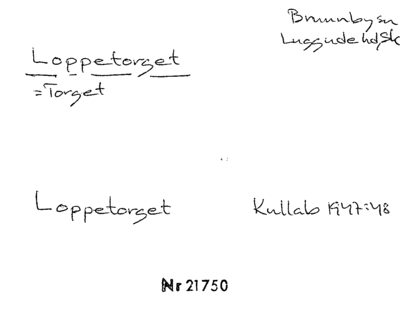 Brunnby sn
Luggude hd Sk
Loppetorget
=Torget
Loppetorget Kullab 1947:48
Nr 21750